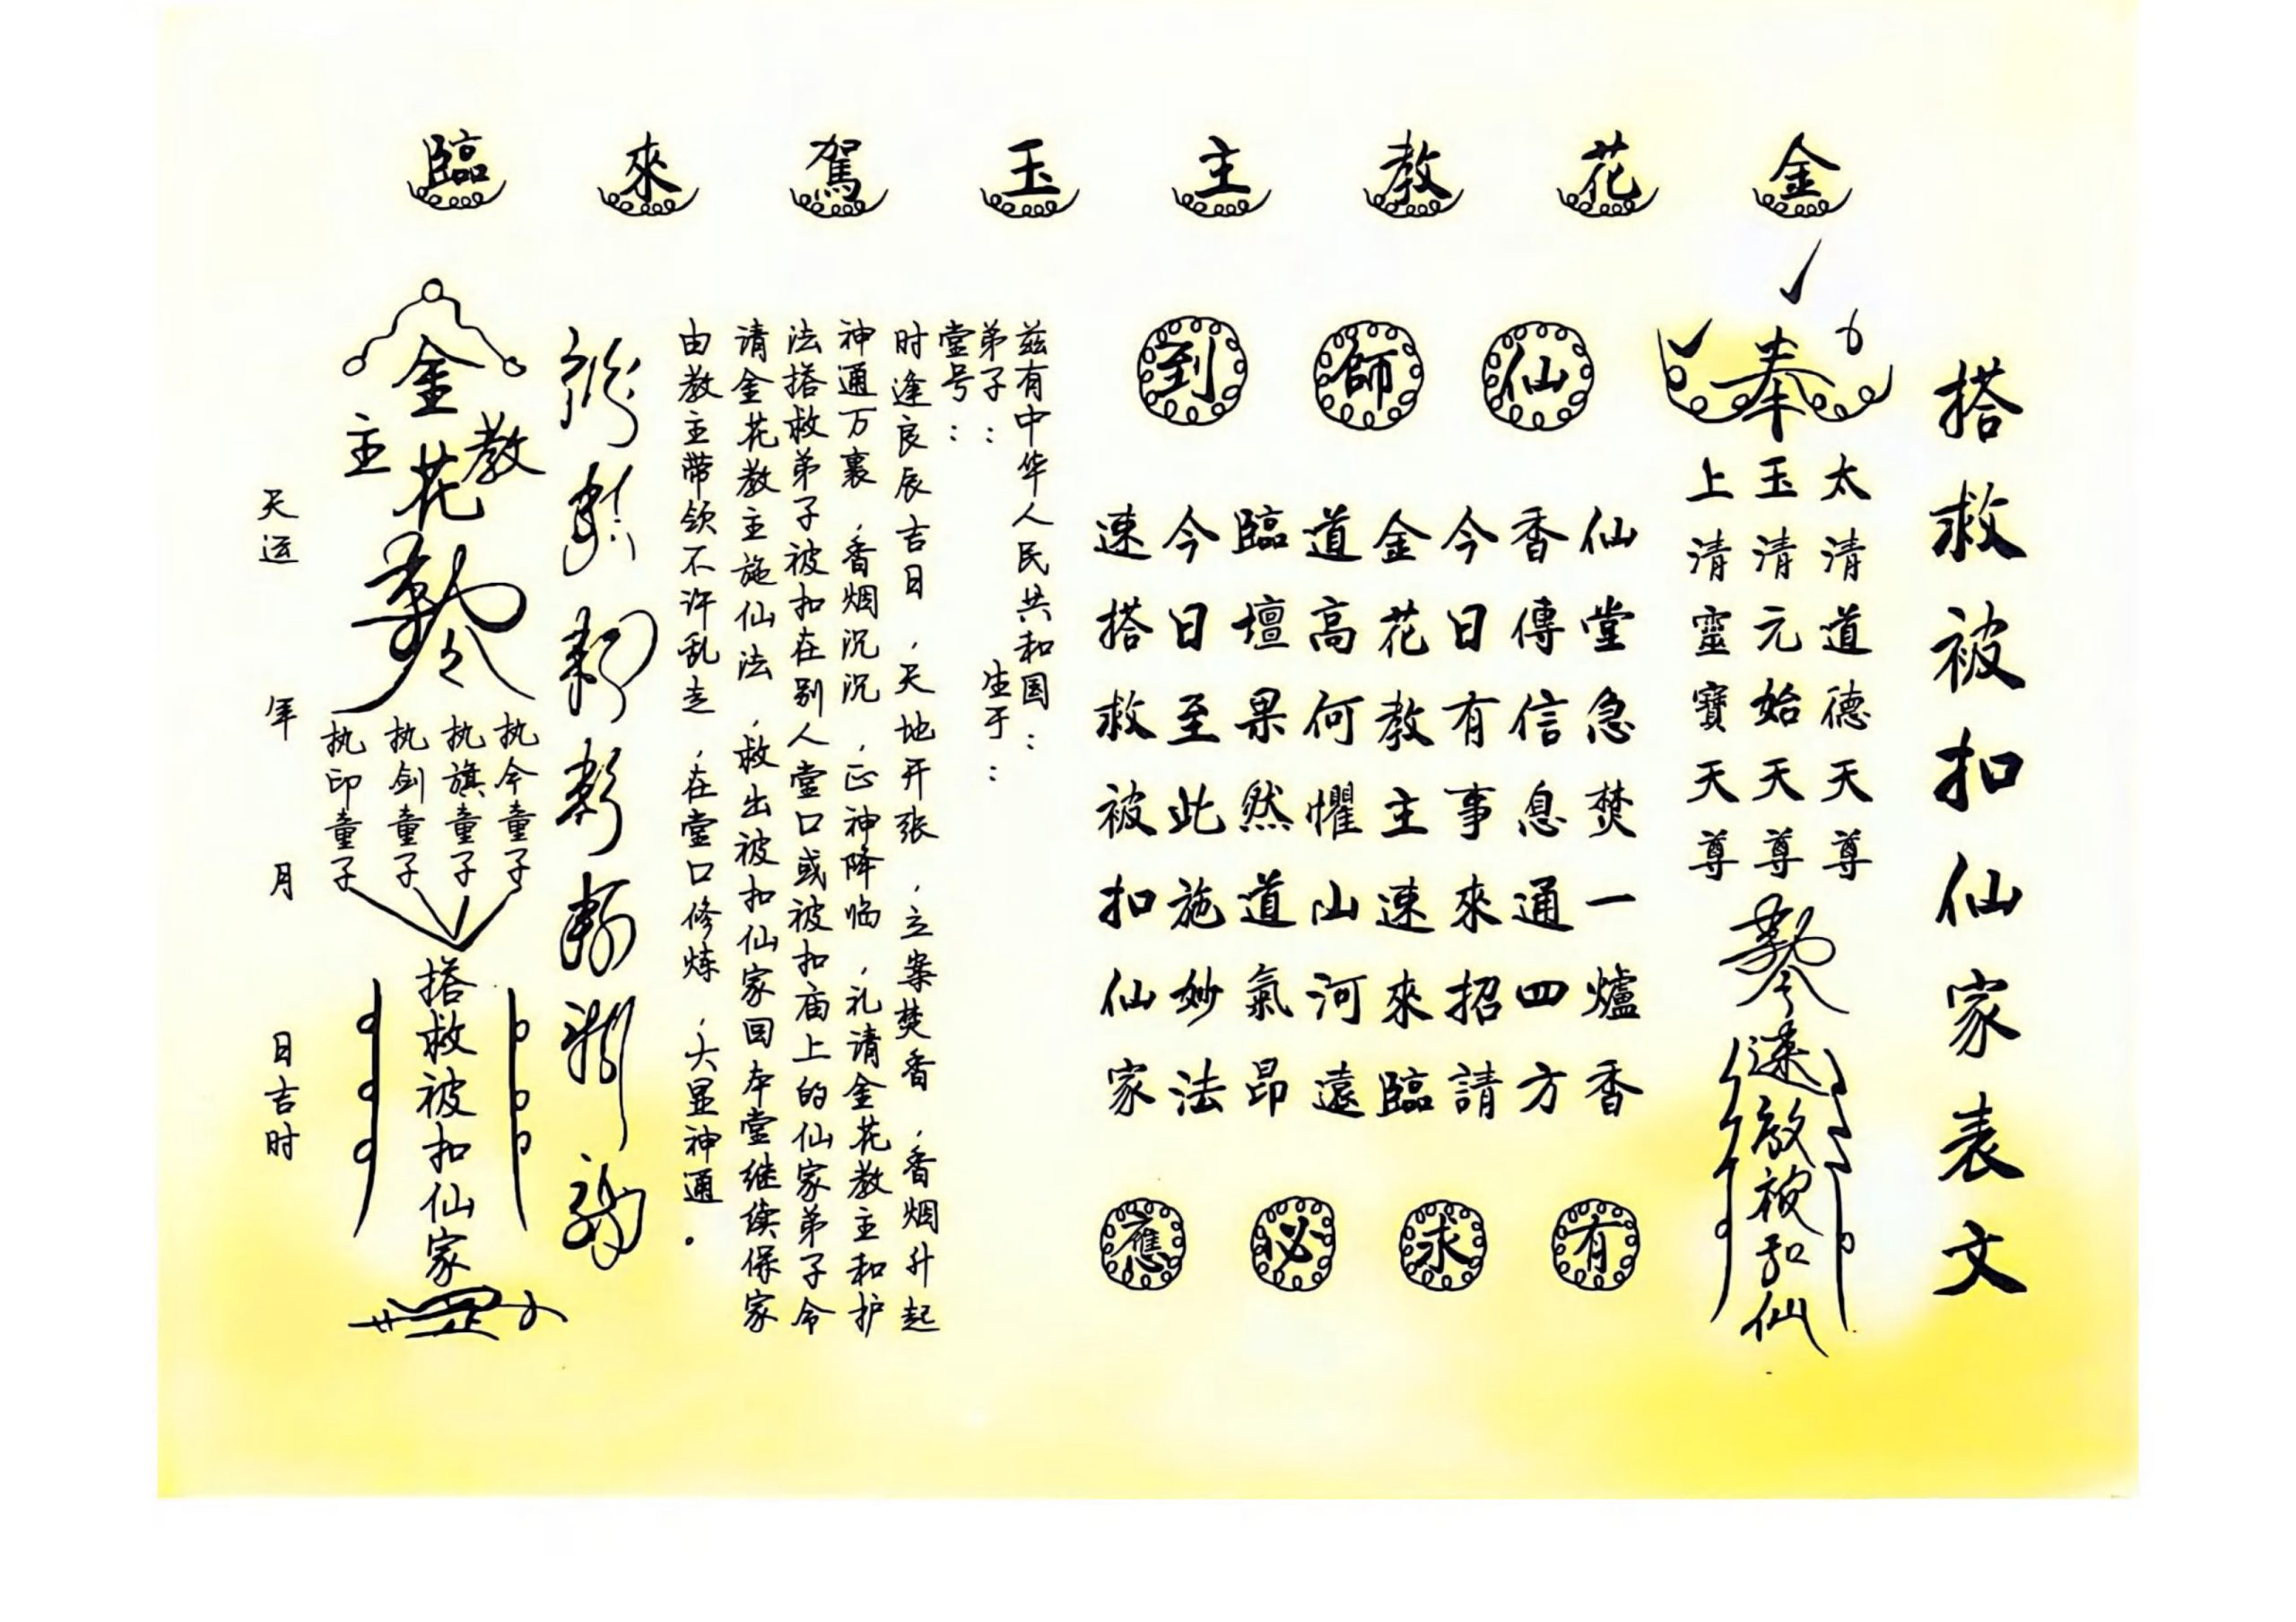 搭救被扣仙家表文
金花教主玉駕來臨
奉
太清道德天尊
玉清元始天尊
上清靈寶天尊
速救被扣仙
仙師到
仙堂急焚一爐香
香傳信息通四方
今日有事來招請
金花教主速來臨
道高何懼山河遠
臨壇果然道氣昂
今日至此施妙法
速搭救被扣仙家
有求必應
兹有中华人民共和国：
弟子： 生于：
堂号：
时逢良辰吉日，天地开张，立案焚香，香烟升起
神通万裏，香烟沉沉，正神降临，礼请金花教主和护
法搭救弟子被扣在别人堂口或被扣庙上的仙家弟子令
请金花教主施仙法，救出被扣仙家回本堂继续保家
由教主带领不许乱走，在堂口修炼，大显神通。
金花教主
执令童子
执旗童子
执剑童子
执印童子
搭救被扣仙家
天运 年 月 日吉时